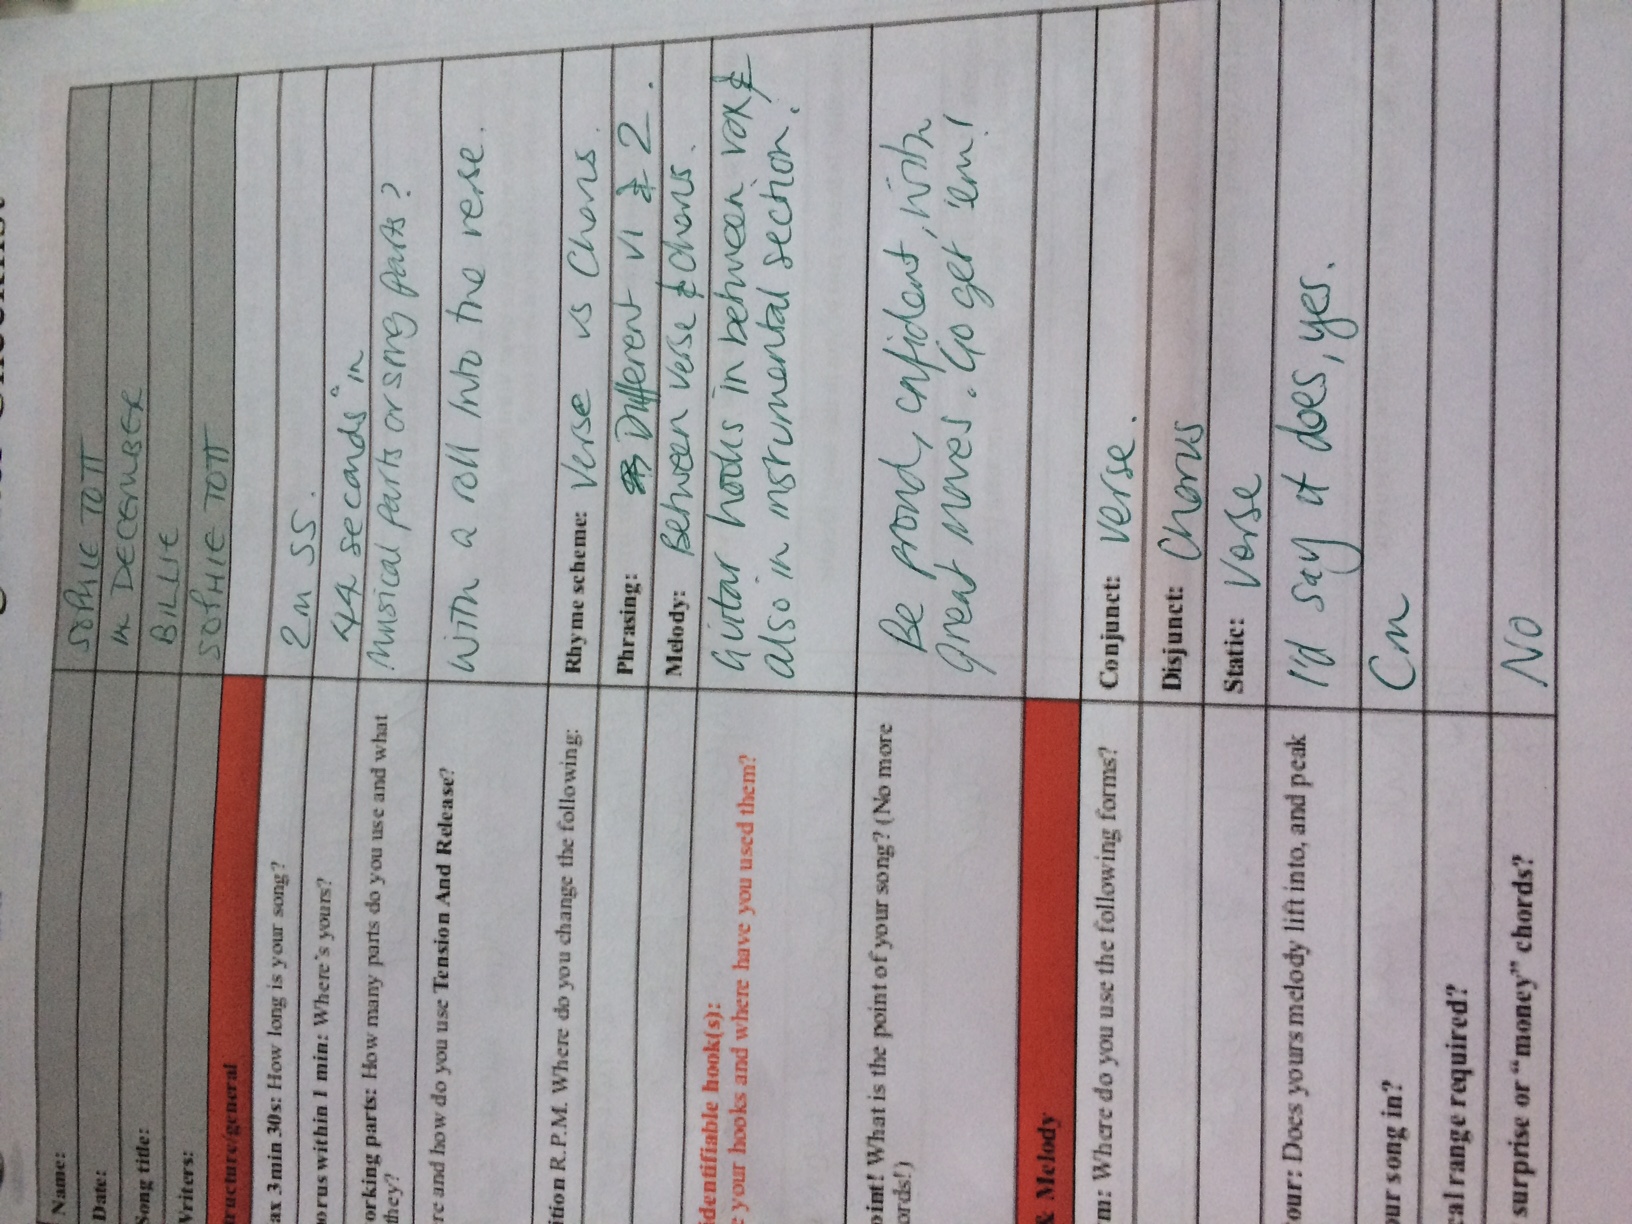 Name: SOPHIE TOTT
Date: 14 DECEMBER
Song title: BILLIE
Writers: SOPHIE TOTT
ructure/general
ax 3min 30s: How long is your song? 2m 55.
orus within 1 min: Where's yours? 44 seconds in
orking parts: How many parts do you use and what
they?
Musical parts or song parts?
re and how do you use Tension And Release? With a roll into the verse.
ition R.P.M. Where do you change the following:
Rhyme scheme: Verse vs Chorus.
Phrasing: Different V1 & 2.
Melody: Between verse & chorus.
dentifiable hook(s):
e your hooks and where have you used them?
Guitar hooks in between vox &
also in instrumental section.
oint! What is the point of your song? (No more
ords!)
Be proud, confident, with
great moves. Go get 'em!
& Melody
rm: Where do you use the following forms?
Conjunct: Verse.
Disjunct: Chorus
Static: Verse
our: Does yours melody lift into, and peak
I'd say it does, yes.
our song in? Cm
al range required?
surprise or "money" chords? No